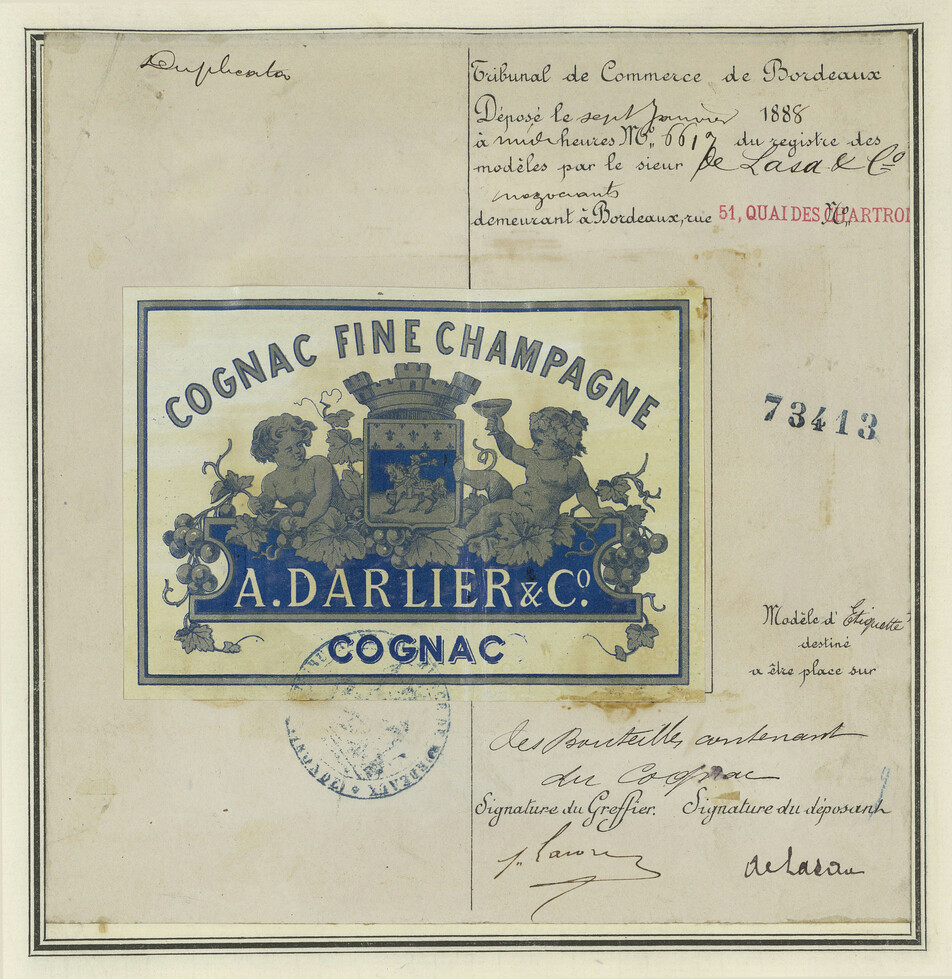 Duplicata
Tribunal de Commerce de Bordeaux
Déposé le sept Janvier 1888
à midi heures No. 6619 du registre des
modèles par le sieur de Lasa & Co
negociants
demeurant à Bordeaux, rue 51, QUAI DES CHARTRO No.
COGNAC FINE CHAMPAGNE
A. DARLIER & Co.
COGNAC
73413
Modèle d'Etiquette
destiné
a être place sur
des Bouteilles contenant
du Cognac
Signature du Greffier. Signature du déposant
BORDEAUX